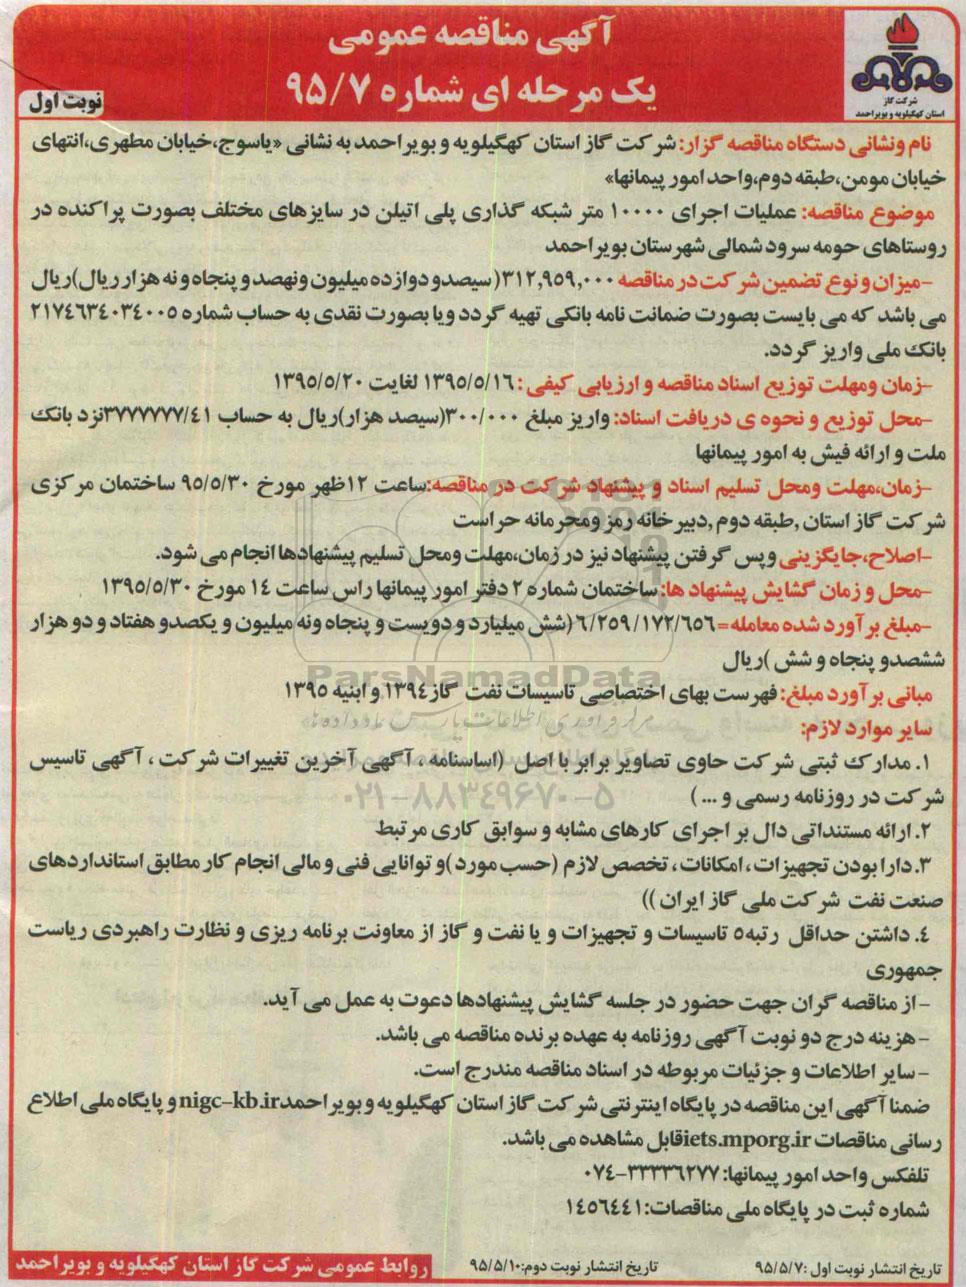 آگهی مناقصه عمومی
یک مرحله ای شماره ۹۵/۷
نوبت اول
شرکت گاز
استان کهگیلویه و بویراحمد
نام ونشانی دستگاه مناقصه گزار: شرکت گاز استان کهگیلویه و بویراحمد به نشانی «یاسوج،خیابان مطهری،انتهای
خیابان مومن،طبقه دوم،واحد امور پیمانها»
موضوع مناقصه: عملیات اجرای ۱۰۰۰۰ متر شبکه گذاری پلی اتیلن در سایزهای مختلف بصورت پراکنده در
روستاهای حومه سرود شمالی شهرستان بویراحمد
-میزان و نوع تضمین شرکت در مناقصه ۳۱۲,۹۵۹,۰۰۰(سیصدو دوازده میلیون ونهصد و پنجاه و نه هزار ریال)ریال
می باشد که می بایست بصورت ضمانت نامه بانکی تهیه گردد ویا بصورت نقدی به حساب شماره ۲۱۷۴۶۳۴۰۳۴۰۰۵
بانک ملی واریز گردد.
-زمان ومهلت توزیع اسناد مناقصه و ارزیابی کیفی : ۱۳۹۵/۵/۱۶ لغایت ۱۳۹۵/۵/۲۰
-محل توزیع و نحوه ی دریافت اسناد: واریز مبلغ ۳۰۰/۰۰۰(سیصد هزار)ریال به حساب ۳۷۷۷۷۷۷/۴۱نزد بانک
ملت و ارائه فیش به امور پیمانها
-زمان،مهلت ومحل تسلیم اسناد و پیشنهاد شرکت در مناقصه:ساعت ۱۲ظهر مورخ ۹۵/۵/۳۰ ساختمان مرکزی
شرکت گاز استان ,طبقه دوم ,دبیرخانه رمز ومحرمانه حراست
-اصلاح،جایگزینی و پس گرفتن پیشنهاد نیز در زمان،مهلت ومحل تسلیم پیشنهادها انجام می شود.
-محل و زمان گشایش پیشنهاد ها: ساختمان شماره ۲ دفتر امور پیمانها راس ساعت ۱۴ مورخ ۱۳۹۵/۵/۳۰
-مبلغ برآورد شده معامله= ۶/۲۵۹/۱۷۲/۶۵۶(شش میلیارد و دویست و پنجاه ونه میلیون و یکصدو هفتاد و دو هزار
ششصدو پنجاه و شش )ریال
ParsNamadData
مبانی برآورد مبلغ: فهرست بهای اختصاصی تاسیسات نفت گاز ۱۳۹۴ و ابنیه ۱۳۹۵
سایر موارد لازم:
۱. مدارک ثبتی شرکت حاوی تصاویر برابر با اصل (اساسنامه ، آگهی آخرین تغییرات شرکت ، آگهی تاسیس
شرکت در روزنامه رسمی و ... )
۰۲۱-۸۸۳۴۹۶۷۰-۵
۲. ارائه مستنداتی دال بر اجرای کارهای مشابه و سوابق کاری مرتبط
۳. دارا بودن تجهیزات ، امکانات ، تخصص لازم (حسب مورد )و توانایی فنی و مالی انجام کار مطابق استانداردهای
صنعت نفت شرکت ملی گاز ایران ))
۴. داشتن حداقل رتبه۵ تاسیسات و تجهیزات و یا نفت و گاز از معاونت برنامه ریزی و نظارت راهبردی ریاست
جمهوری
- از مناقصه گران جهت حضور در جلسه گشایش پیشنهادها دعوت به عمل می آید.
- هزینه درج دو نوبت آگهی روزنامه به عهده برنده مناقصه می باشد.
- سایر اطلاعات و جزئیات مربوطه در اسناد مناقصه مندرج است.
ضمنا آگهی این مناقصه در پایگاه اینترنتی شرکت گاز استان کهگیلویه و بویراحمدnigc-kb.ir و پایگاه ملی اطلاع
رسانی مناقصات iets.mporg.irقابل مشاهده می باشد.
تلفکس واحد امور پیمانها: ۳۳۳۳۶۲۷۷-۰۷۴
شماره ثبت در پایگاه ملی مناقصات: ۱۴۵۶۴۴۱
تاریخ انتشار نوبت اول :۹۵/۵/۷
تاریخ انتشار نوبت دوم:۹۵/۵/۱۰
روابط عمومی شرکت گاز استان کهگیلویه و بویراحمد